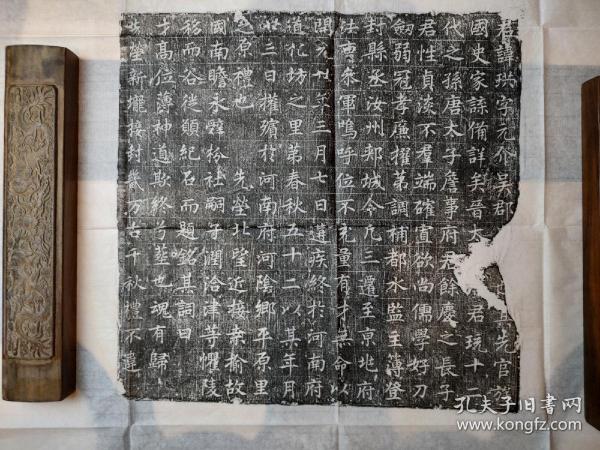 君諱珙字元介吴郡
國史家諜俻詳矣晉太君玩十一
代之孫唐太子詹事府丞餘慶之長子
君性貞淡不羣端確直欲尚儒學好刀
劒弱冠孝廉擢第調補都水監主薄登
封縣丞汝州郏城令凡三遷至京北府
法曹叅軍嗚呼位不充量有才無命以
開元廿年三月七日遘疾終於河南府
道化坊之里第春秋五十二以其年月
三日權殯於河南府河陰鄉平原里
之原禮也先塋北望近接枌榆故
國南瞻永辭枌社嗣子潤洽津等懼陵
移而谷徙願紀石而題銘其詞曰
才高位薄神道欺終兮葬也魂有歸
先塋新壠接封幾万古千秋禮不違
孔夫子旧書网
www.kongfz.com